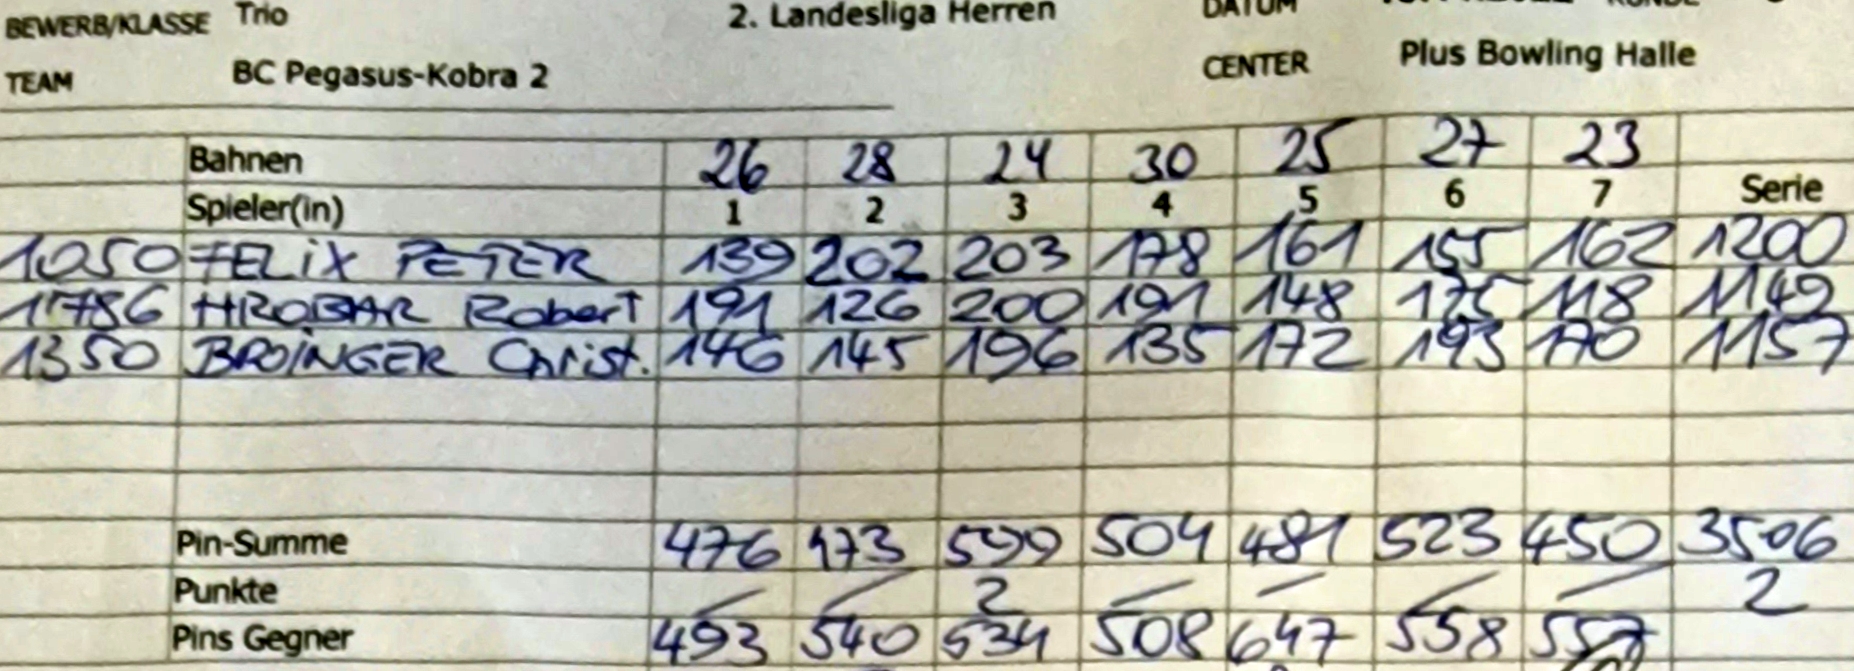 BEWERB/KLASSE Trio 2. Landesliga Herren DATUM
TEAM BC Pegasus-Kobra 2 CENTER Plus Bowling Halle
Bahnen 26 28 24 30 25 27 23
Spieler(in) 1 2 3 4 5 6 7 Serie
1050 FELiX PETER 139 202 203 178 161 155 162 1200
11786 HROBAR Robert 191 126 200 191 148 175 118 1149
1350 BROiNGER Christ. 146 145 196 135 172 193 170 1157
Pin-Summe 476 473 599 504 481 523 450 3506
Punkte 2 2
Pins Gegner 493 540 534 508 647 558 557